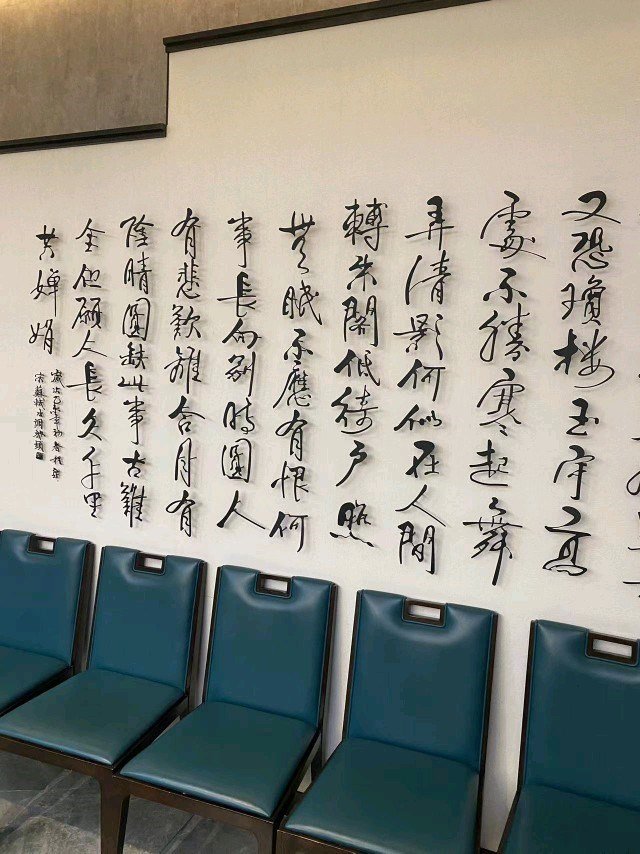 又恐瓊樓玉宇高
處不勝寒起舞
弄清影何似在人間
轉朱閣低綺戶照
無眠不應有恨何
事長向別時圓人
有悲歡離合月有
陰晴圓缺此事古難
全但願人長久千里
共嬋娟
宋蘇軾水調歌頭